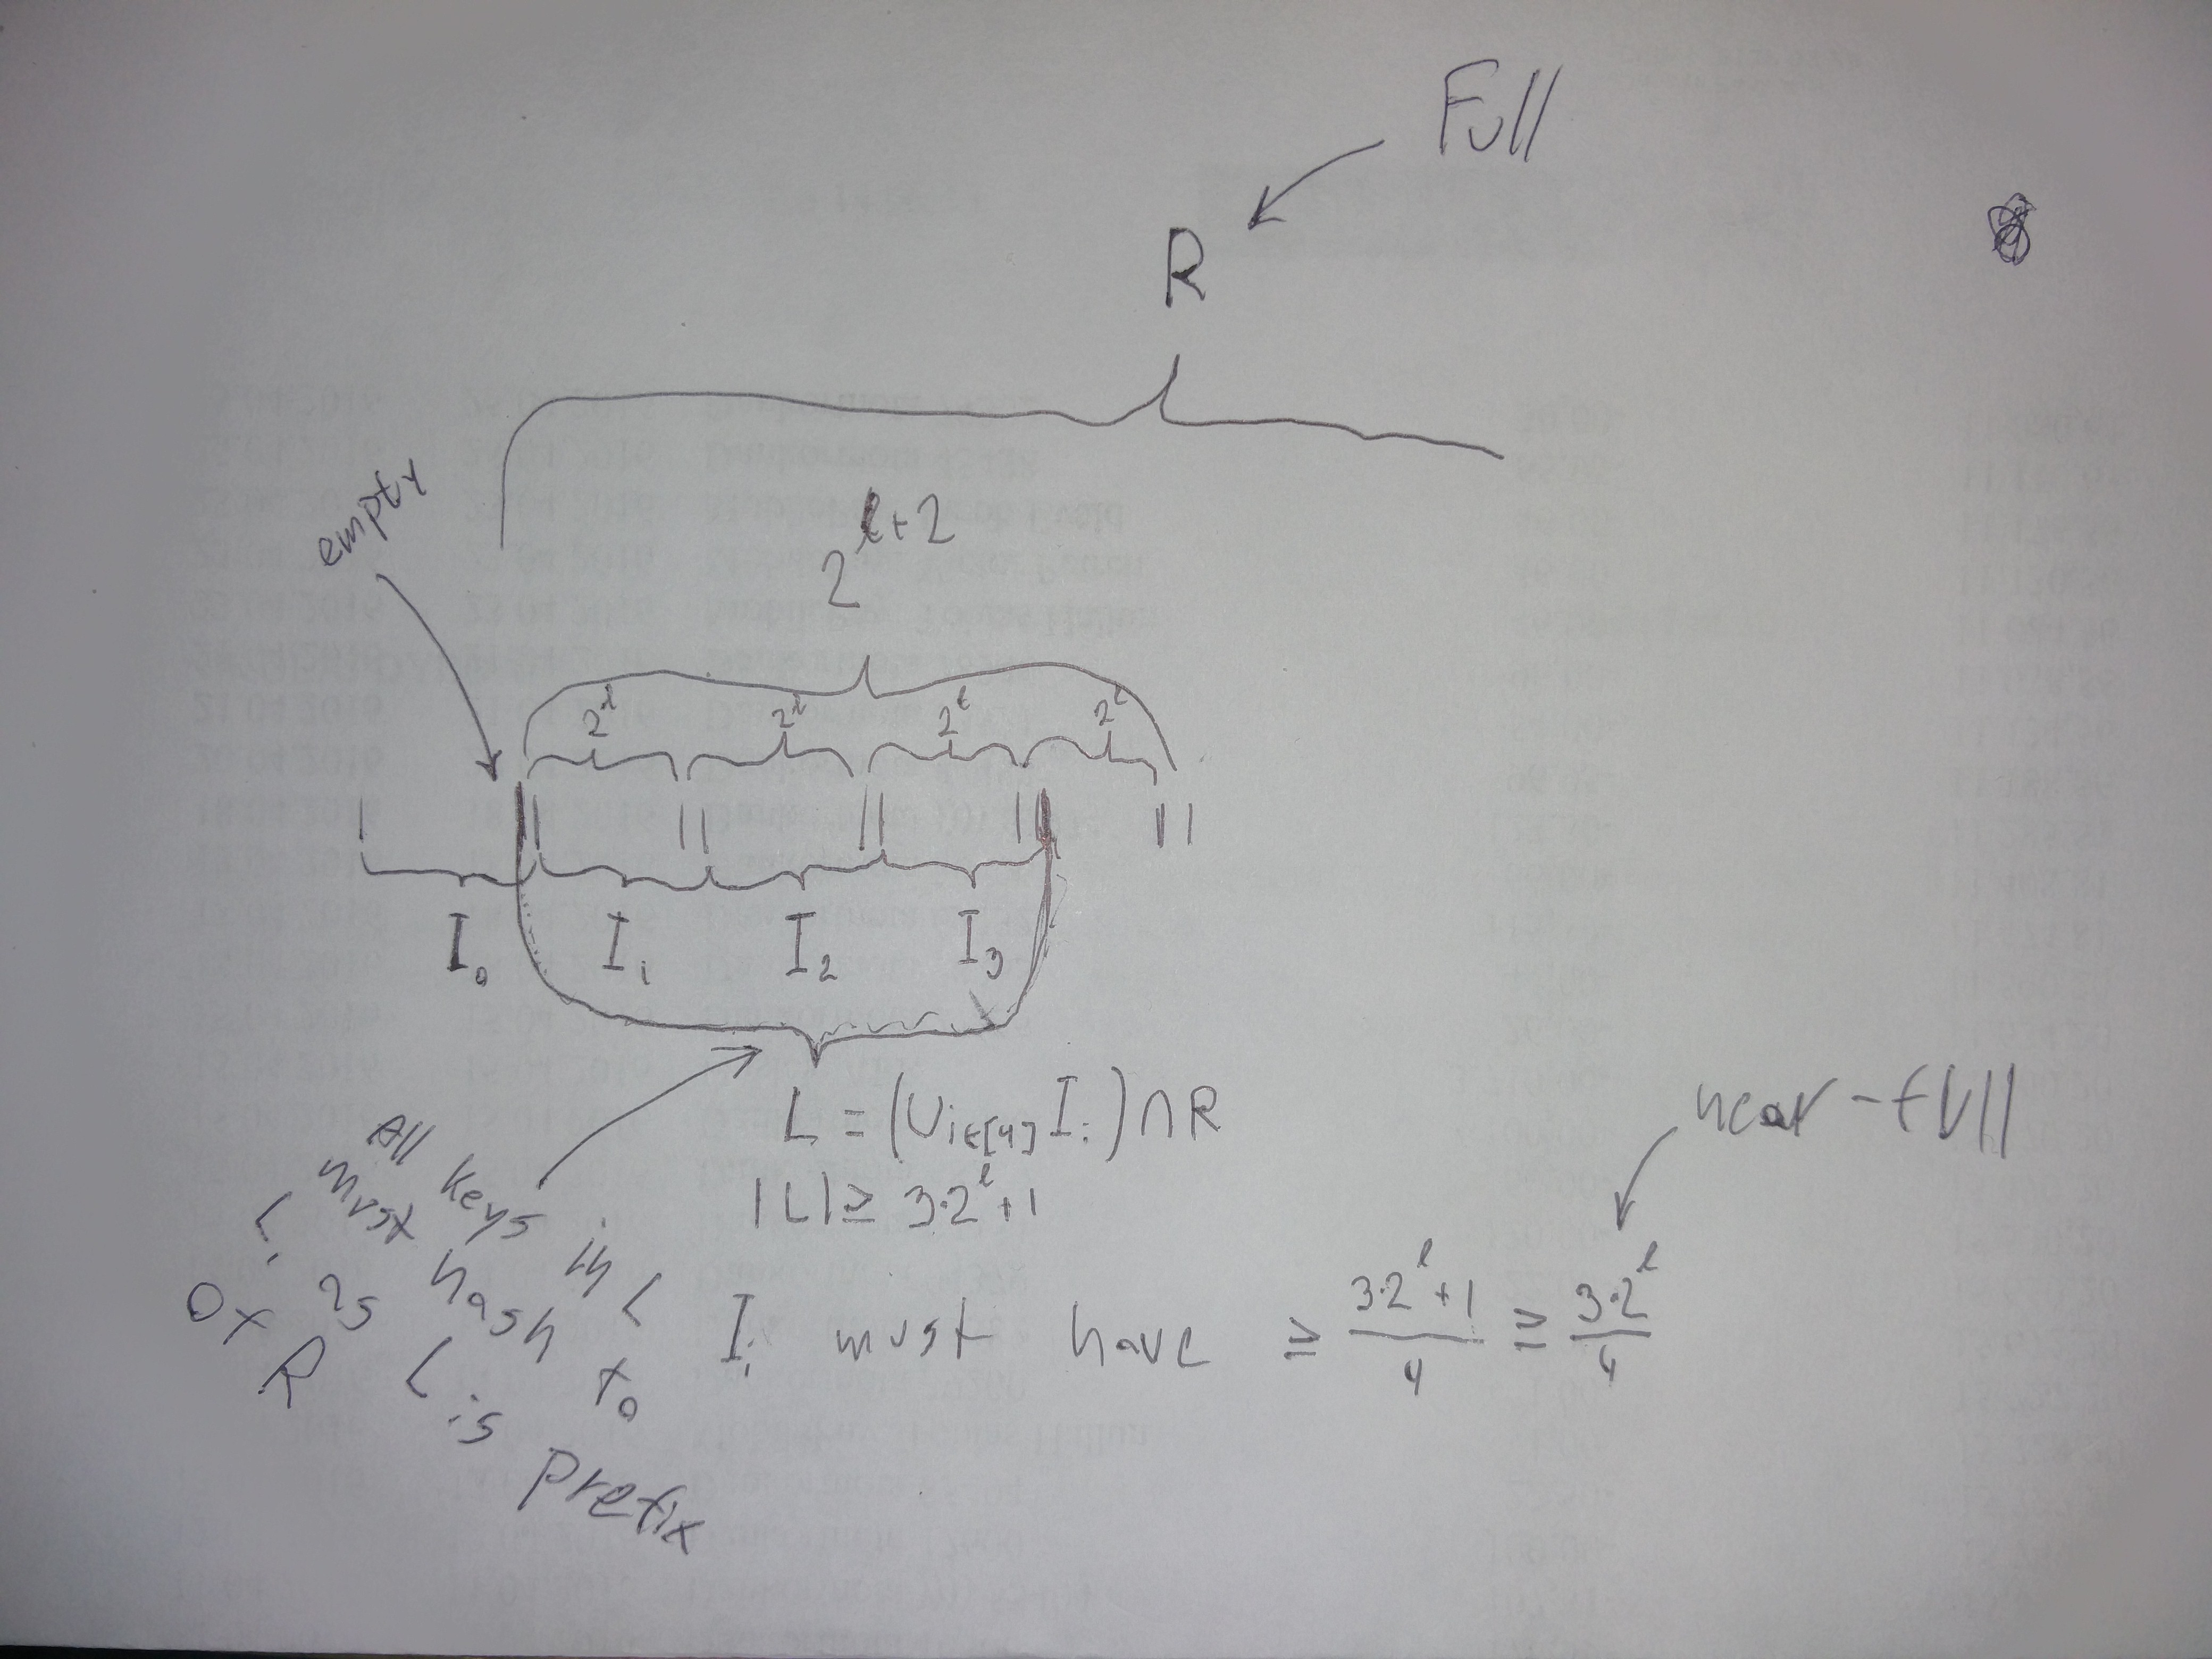 Full
R
empty
2^{l+2}
2^l 2^l 2^l 2^l
I_0 I_1 I_2 I_3
L = (∪_{i∈[4]} I_i) ∩ R
|L| ≥ 3·2^l+1
near-full
All keys in L
must hash to
L. as L is prefix
Ox R
I_i must have ≥ \frac{3·2^l+1}{4} ≥ \frac{3·2^l}{4}